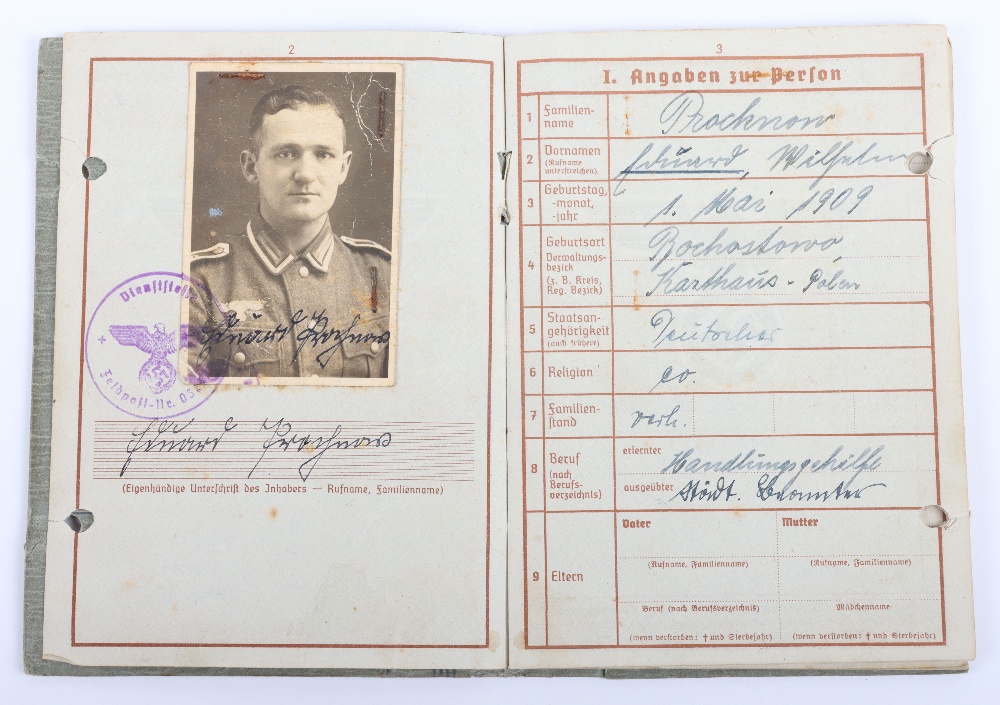 2
Dienststelle
Feldpost-Nr. 03
Eduard Prochnow
Eduard Prochnow
(Eigenhändige Unterschrift des Inhabers — Rufname, Familienname)
3
I. Angaben zur Person
1 Familien-
name
Prochnow
2 Vornamen
(Rufname
unterstreichen)
Eduard, Wilhelm
3 Geburtstag,
-monat,
-jahr
1. Mai 1909
4 Geburtsort
Verwaltungs-
bezirk
(z. B. Kreis,
Reg. Bezirk)
Karthaus - Polen
5 Staatsan-
gehörigkeit
(auch frühere)
Deutscher
6 Religion
ev.
7 Familien-
stand
verh.
8 Beruf
(nach
Berufs-
verzeichnis)
erlernter Handlungsgehilfe
ausgeübter Städt. Beamter
9 Eltern
Vater Mutter
(Rufname, Familienname) (Rufname, Familienname)
Beruf (nach Berufsverzeichnis) Mädchenname
(wenn verstorben: † und Sterbejahr) (wenn verstorben: † und Sterbejahr)